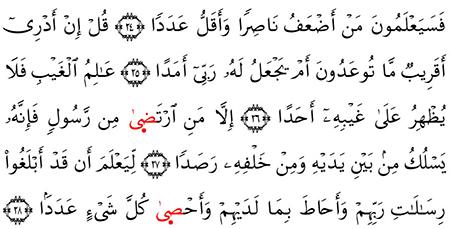 فَسَيَعْلَمُونَ مَنْ أَضْعَفُ نَاصِرًا وَأَقَلُّ عَدَدًا ﴿٢٤﴾ قُلْ إِنْ أَدْرِىٓ
أَقَرِيبٌ مَّا تُوعَدُونَ أَمْ يَجْعَلُ لَهُۥ رَبِّىٓ أَمَدًا ﴿٢٥﴾ عَـٰلِمُ ٱلْغَيْبِ فَلَا
يُظْهِرُ عَلَىٰ غَيْبِهِۦٓ أَحَدًا ﴿٢٦﴾ إِلَّا مَنِ ٱرْتَضَىٰ مِن رَّسُولٍ فَإِنَّهُۥ
يَسْلُكُ مِنۢ بَيْنِ يَدَيْهِ وَمِنْ خَلْفِهِۦ رَصَدًا ﴿٢٧﴾ لِّيَعْلَمَ أَن قَدْ أَبْلَغُوا۟
رِسَـٰلَـٰتِ رَبِّهِمْ وَأَحَاطَ بِمَا لَدَيْهِمْ وَأَحْصَىٰ كُلَّ شَىْءٍ عَدَدًۢا ﴿٢٨﴾